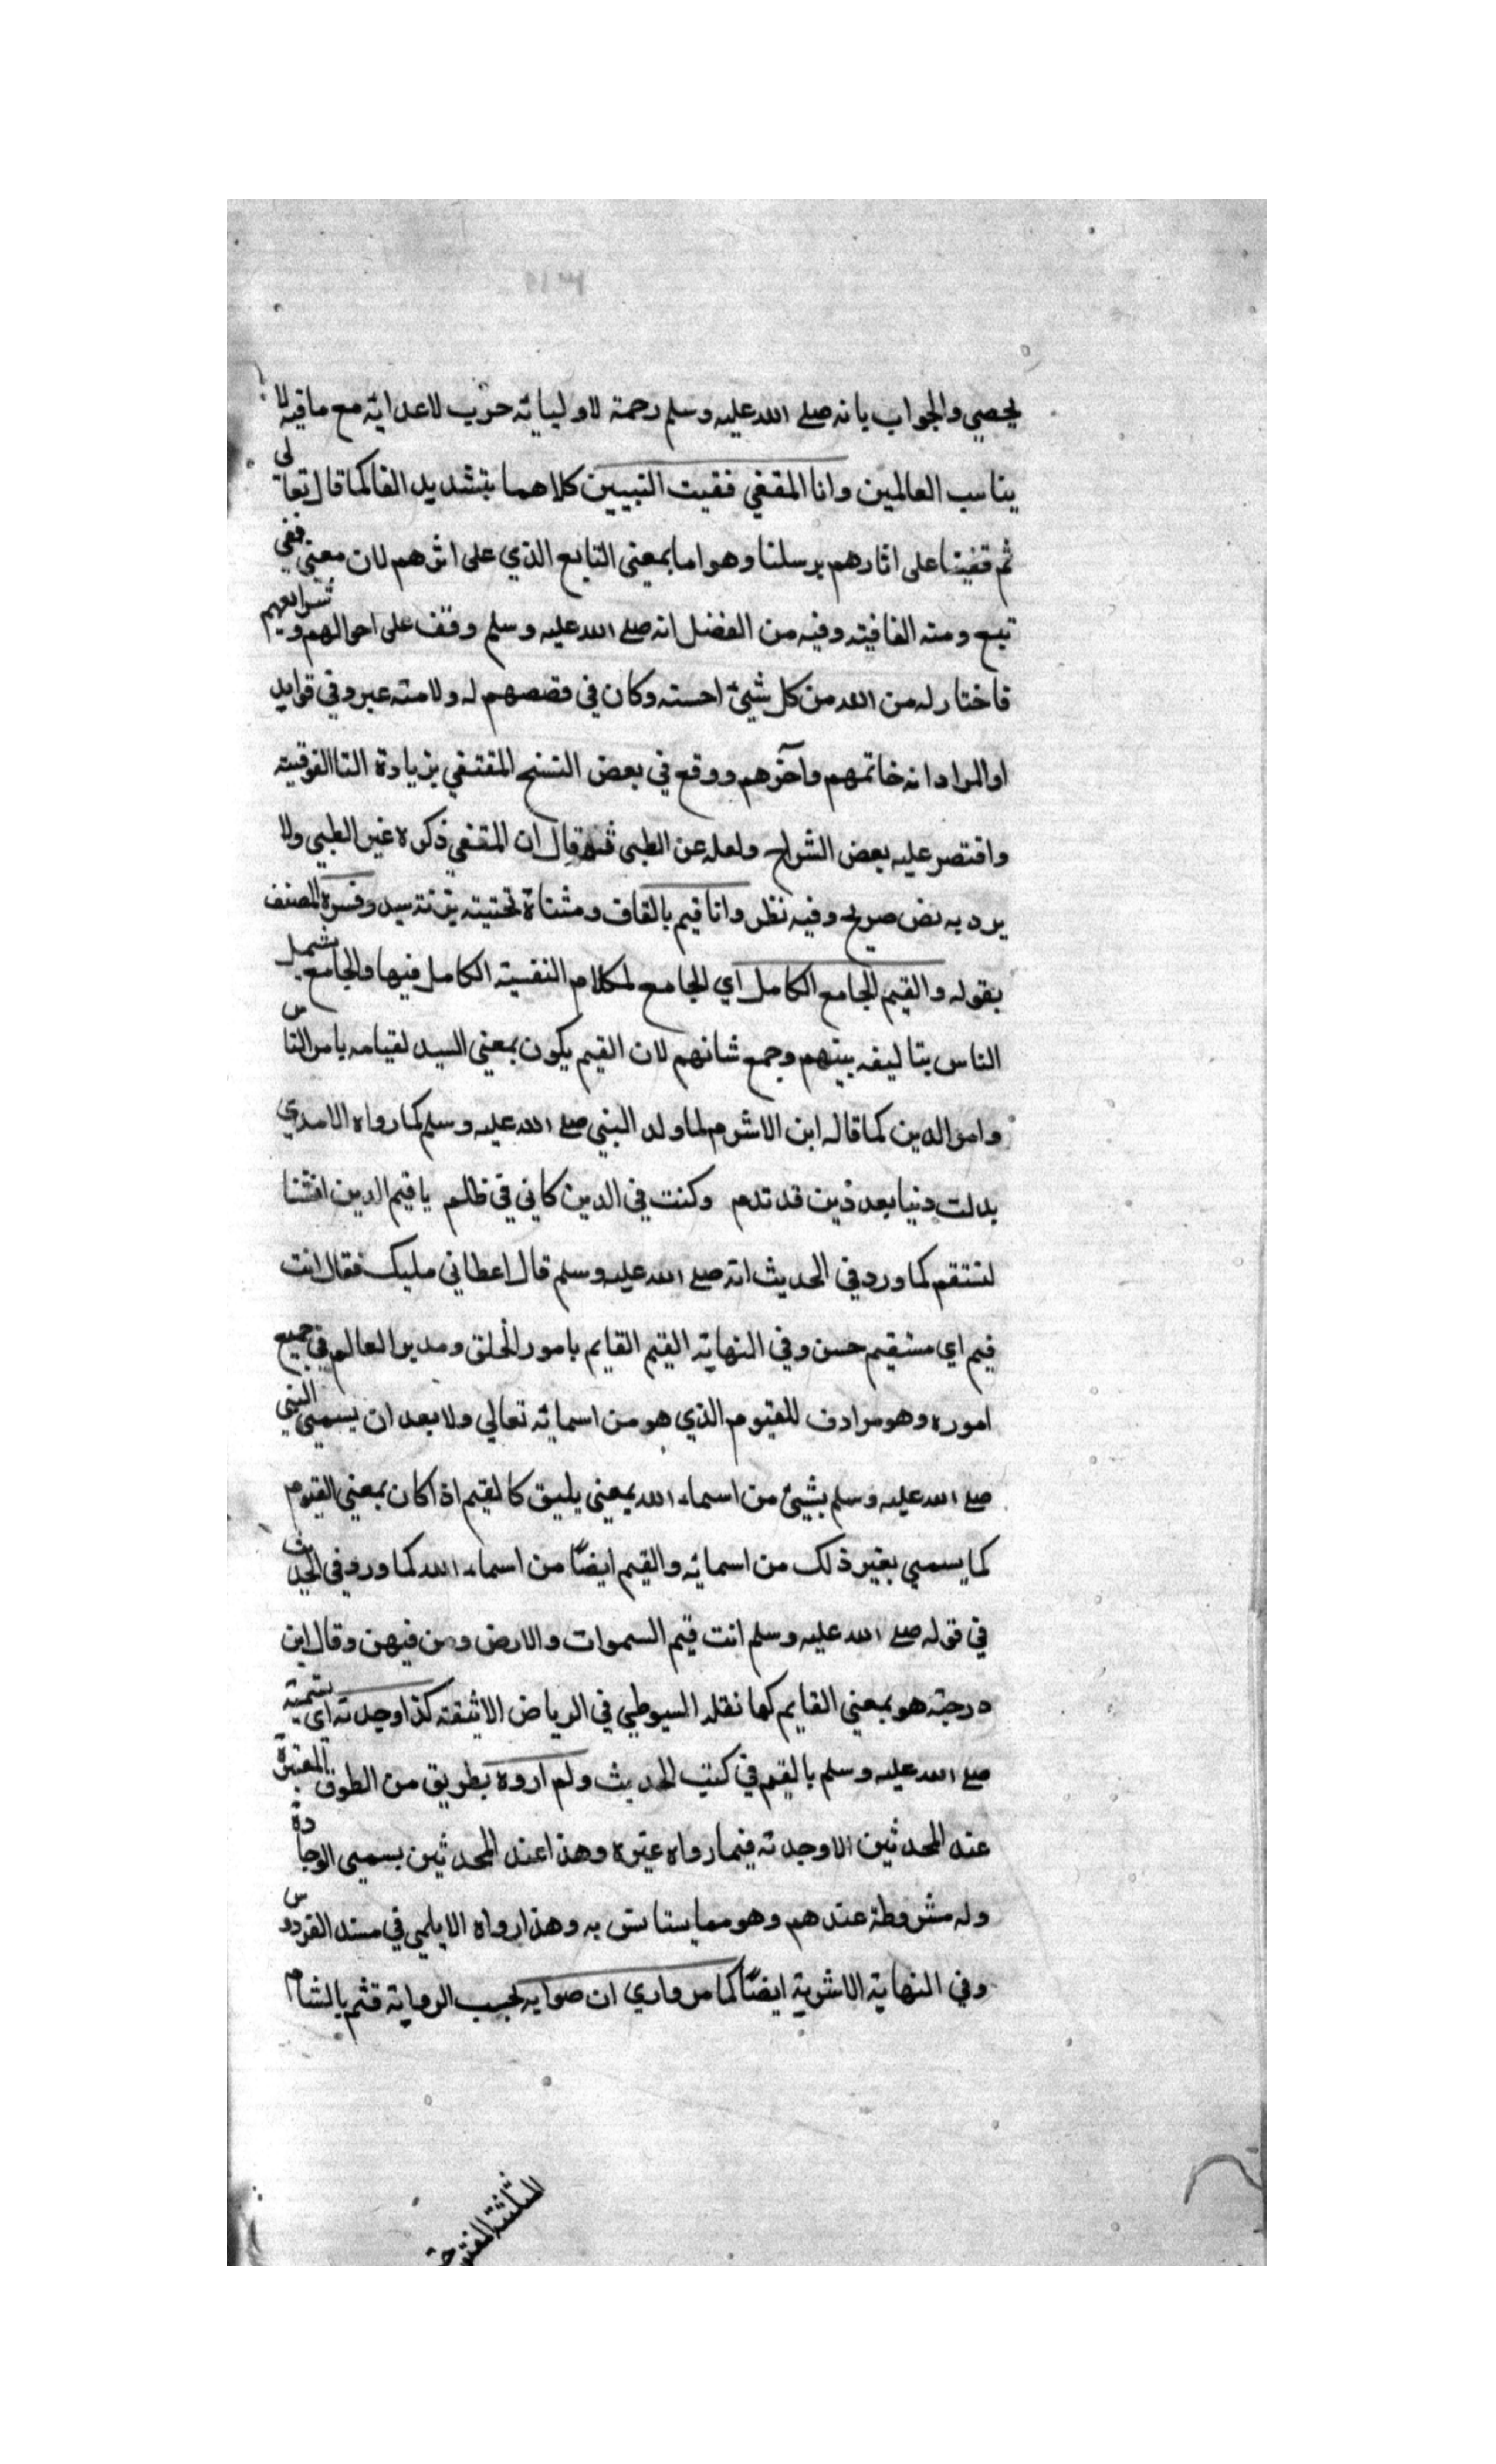 يحصي والجواب بانه صلى الله عليه وسلم رحمة لاوليائه حرب لاعدائه مع ما فيه لا
يناسب العالمين وانا المقفي فقيت النبيين كلاهما بتشديد الفا كما قال تعالى
ثم قفينا على اثارهم برسلنا وهو اما بمعنى التابع الذي على اثرهم لان معنى قفي
تبع ومنه القافيته وفيه من الفضل انه صلى الله عليه وسلم وقف على احوالهم وشرايعهم
فاختار له من الله من كل شيئ احسنه وكان في قصصهم له ولامته عبر وفي فوايد
او المراد انه خاتمهم وآخرهم ووقع في بعض النسخ المقتفي بزيادة التا الفوقيته
واقتصر عليه بعض الشراح ولعله عن الطبي قال ان المقفي ذكره غير الطبي ولا
يرد به نص صريح وفيه نظر وانا قيم بالقاف ومثناة تحتيته بزنة سيد وفسره المصنف
بقوله والقيم الجامع الكامل اي الجامع لمكلام النفسيته الكامل فيها والجامع بشمل
الناس بتاليفه بينهم وجمع شانهم لان القيم يكون بمعنى السيد لقيامه بامر الناس
وامر الدين كما قاله ابن الاشرم لما ولد النبي صلى الله عليه وسلم كما رواه الامدي
بدلت دنيا بعد دين قد تدم وكنت في الدين كاني في ظلم يا قيم الدين اقمنا
لنستقم كما ورد في الحديث انه صلى الله عليه وسلم قال اعطاني مليك فقال انت
قيم اي مستقيم حسن وفي النهاية القيم القايم بامور الخلق ومدبر العالم في جميع
اموره وهو مرادف للقيوم الذي هو من اسمائه تعالي ولا بعد ان يسمي النبي
صلى الله عليه وسلم بشيئ من اسماء الله بمعنى يليق كالقيم اذا كان بمعنى القيوم
كما يسمي بغير ذلك من اسمائه والقيم ايضًا من اسماء الله كما ورد في الحديث
في قوله صلى الله عليه وسلم انت قيم السموات والارض ومن فيهن وقال ابن
درجته هو بمعنى القايم كما نقله السيوطي في الرياض الانيقته كذا وجدته اي تسميته
صلى الله عليه وسلم بالقيم في كتب الحديث ولم اروه بطريق من الطرق المعتبرة
عند المحدثين الا وجدته فيما رواه غيره وهذا عند المحدثين يسمى الوجادة
وله مشروطة عندهم وهو مما يستانس به وهذا رواه الايلمي في مسند الفردوس
وفي النهاية الاشرية ايضًا كما مر واري ان صوابه لحسب الرواية قثم بالشام
المثلثة المفتوحة